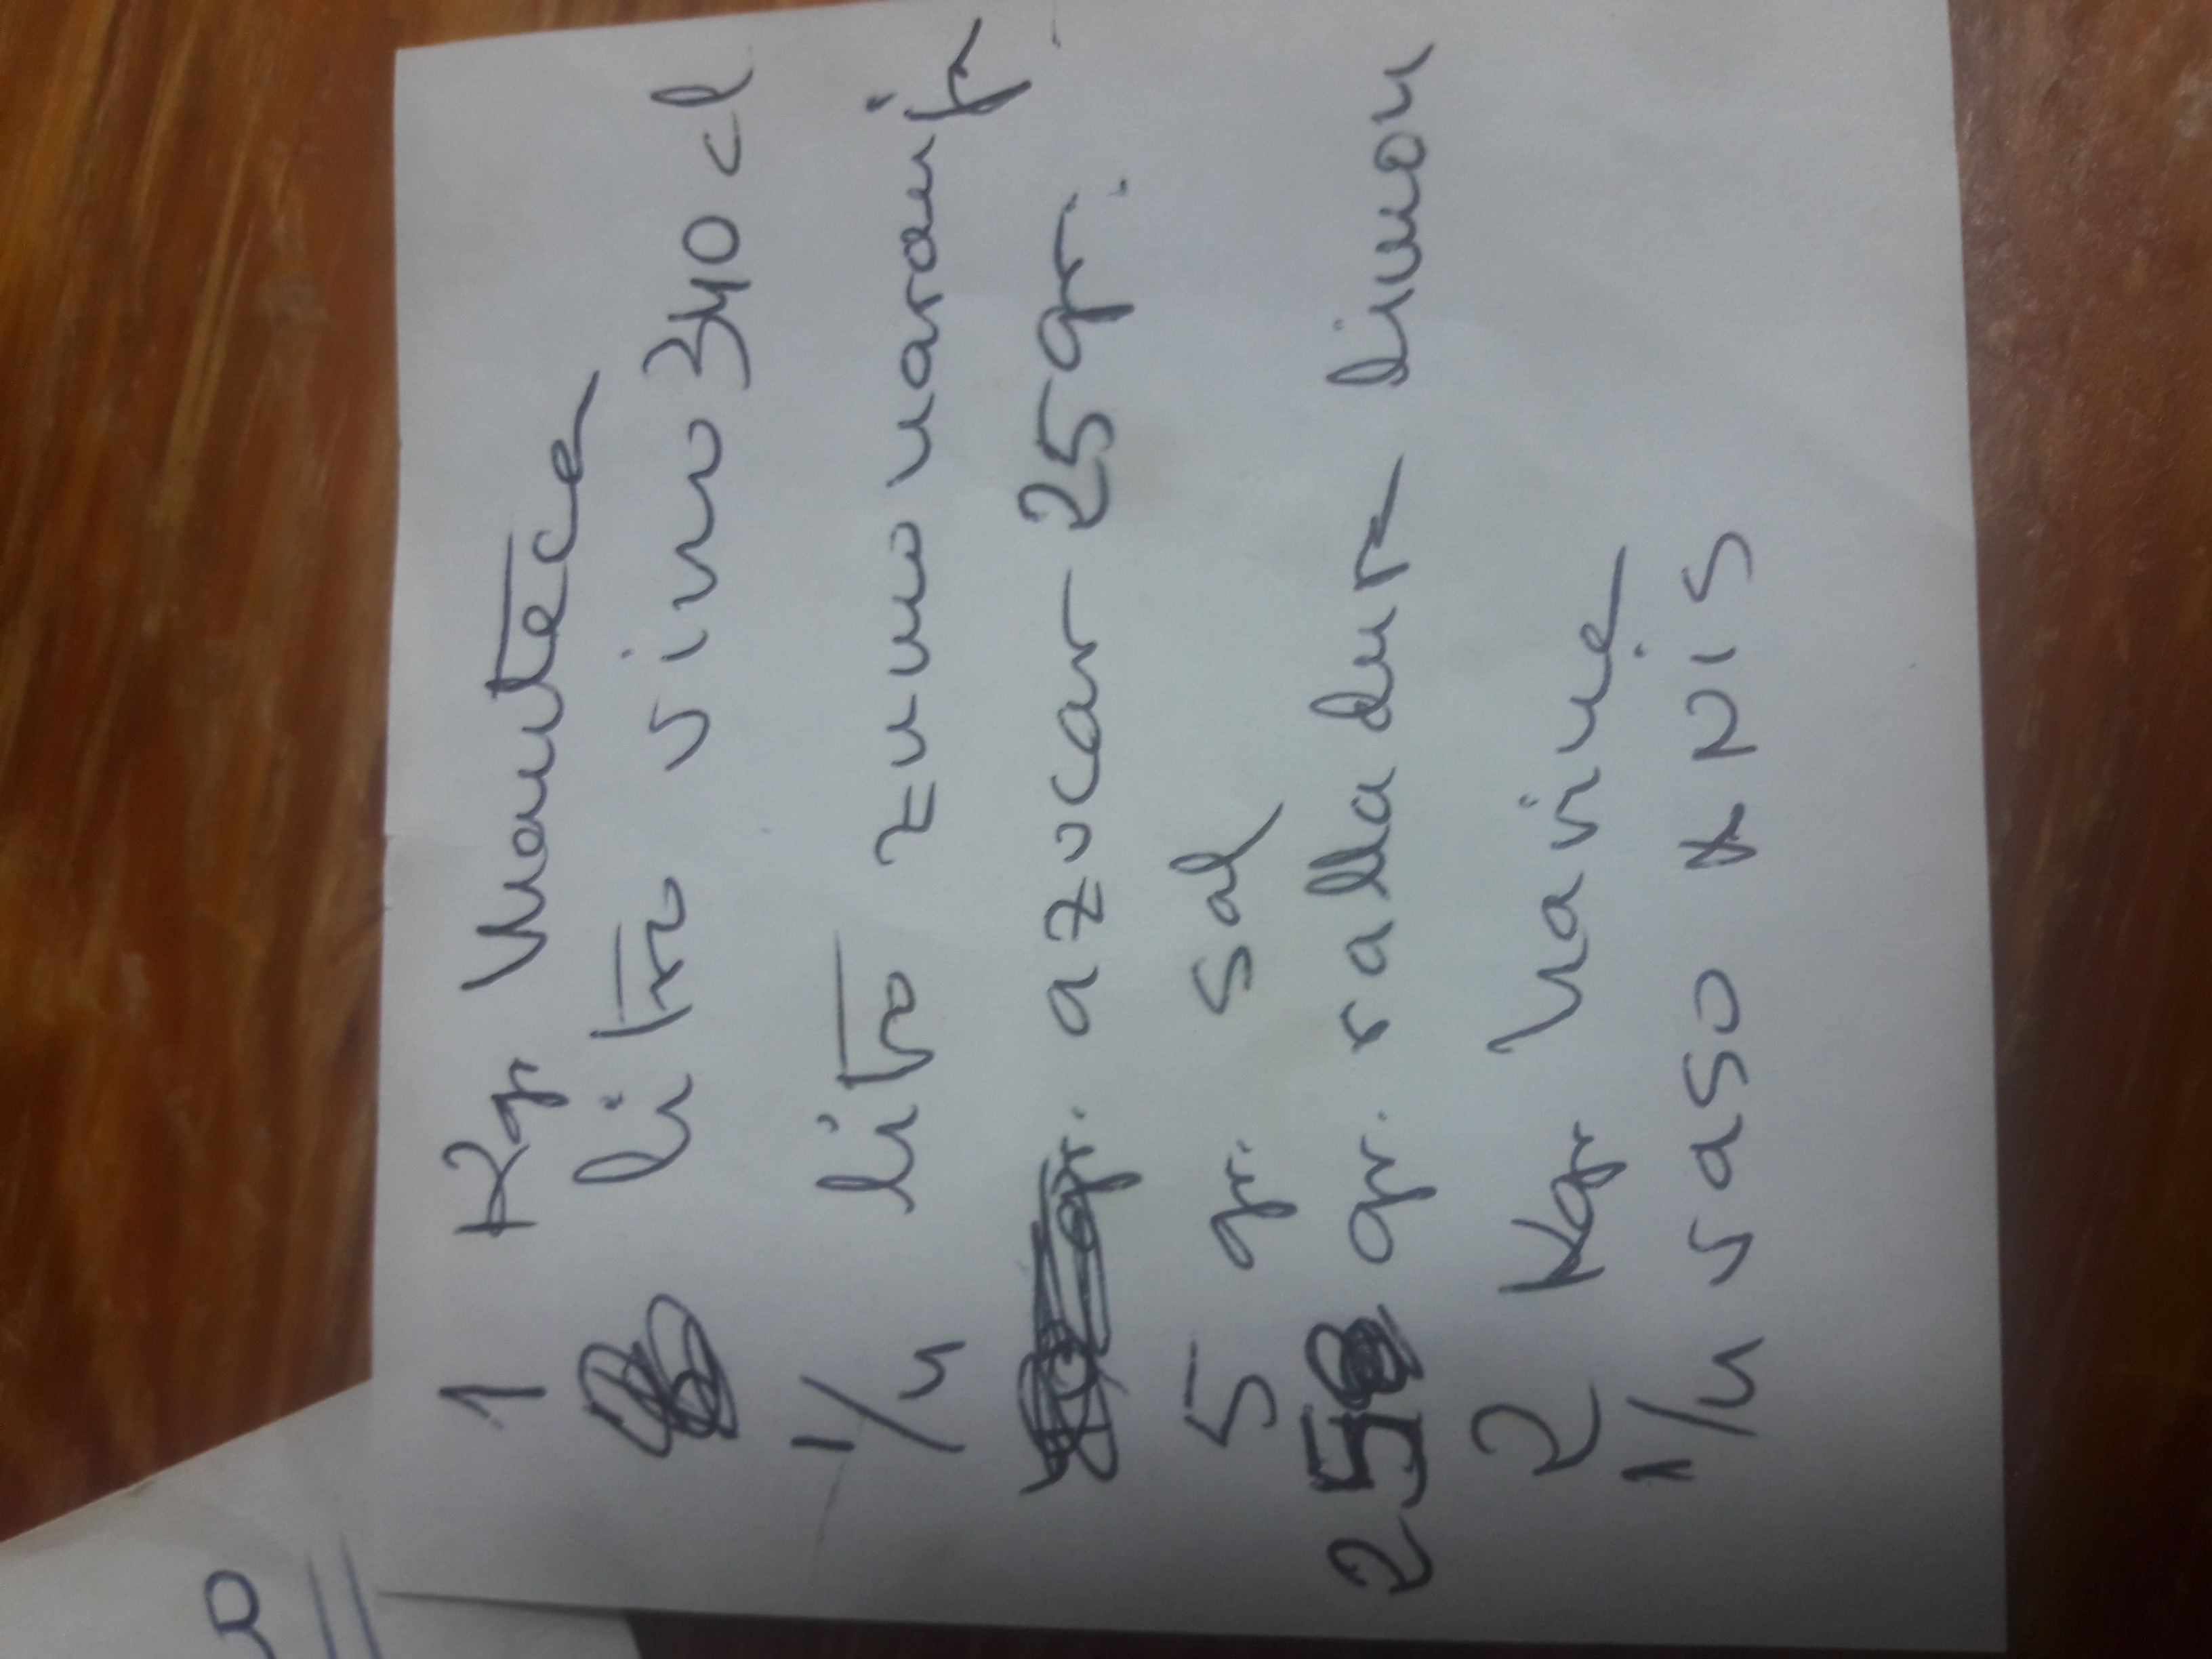 1 Kgr Manteca
litro vino 340 cl
1/4 litro zumo naranja
gr. azucar 25 gr.
5 gr. Sal
25 gr. ralladura limon
2 Kgr harina
1/4 vaso ANIS